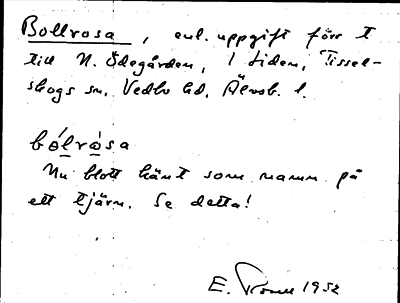 Bollrosa, enl. uppgift förr t
till N. Ödegården, i Liden, Tissel-
skogs sn, Vedbo hd, Älvsb. l.
bólròsa
Nu blott känt som namn på
ett tjärn. Se detta!
E. 1952